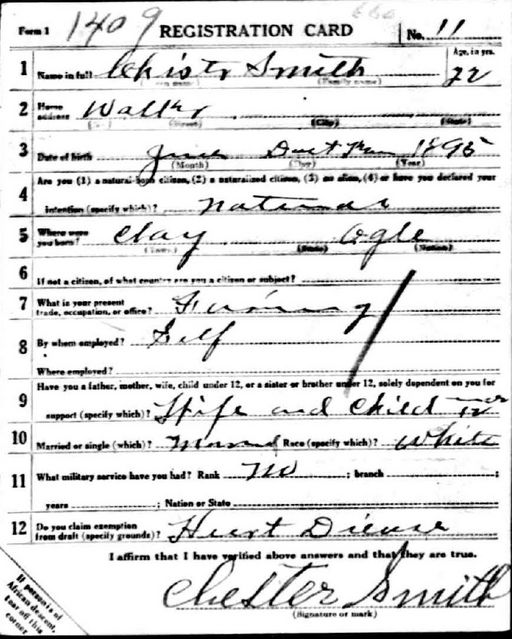 Form 1 1409 REGISTRATION CARD No. 11
1 Name in full Smith (Family name) Age, in yrs. 22
2 Home address Walker (Street) (City) (State)
3 Date of birth June 1895 (Month) (Day) (Year)
4 Are you (1) a natural-born citizen, (2) a naturalized citizen, (3) an alien, (4) or have you declared your
intention (specify which)?
5 Where were you born? Clay Ogle (Town) (State) (Nation)
6 If not a citizen, of what country are you a citizen or subject?
7 What is your present trade, occupation, or office? Farming
8 By whom employed? Self
Where employed?
9 Have you a father, mother, wife, child under 12, or a sister or brother under 12, solely dependent on you for
support (specify which)? Wife and child 12
10 Married or single (which)? Married Race (specify which)? White
11 What military service have you had? Rank No ; branch ;
years ; Nation or State
12 Do you claim exemption from draft (specify grounds)? Hurt Diease
I affirm that I have verified above answers and that they are true.
Chester Smith
(Signature or mark)
If person is of
African descent,
tear off this
corner